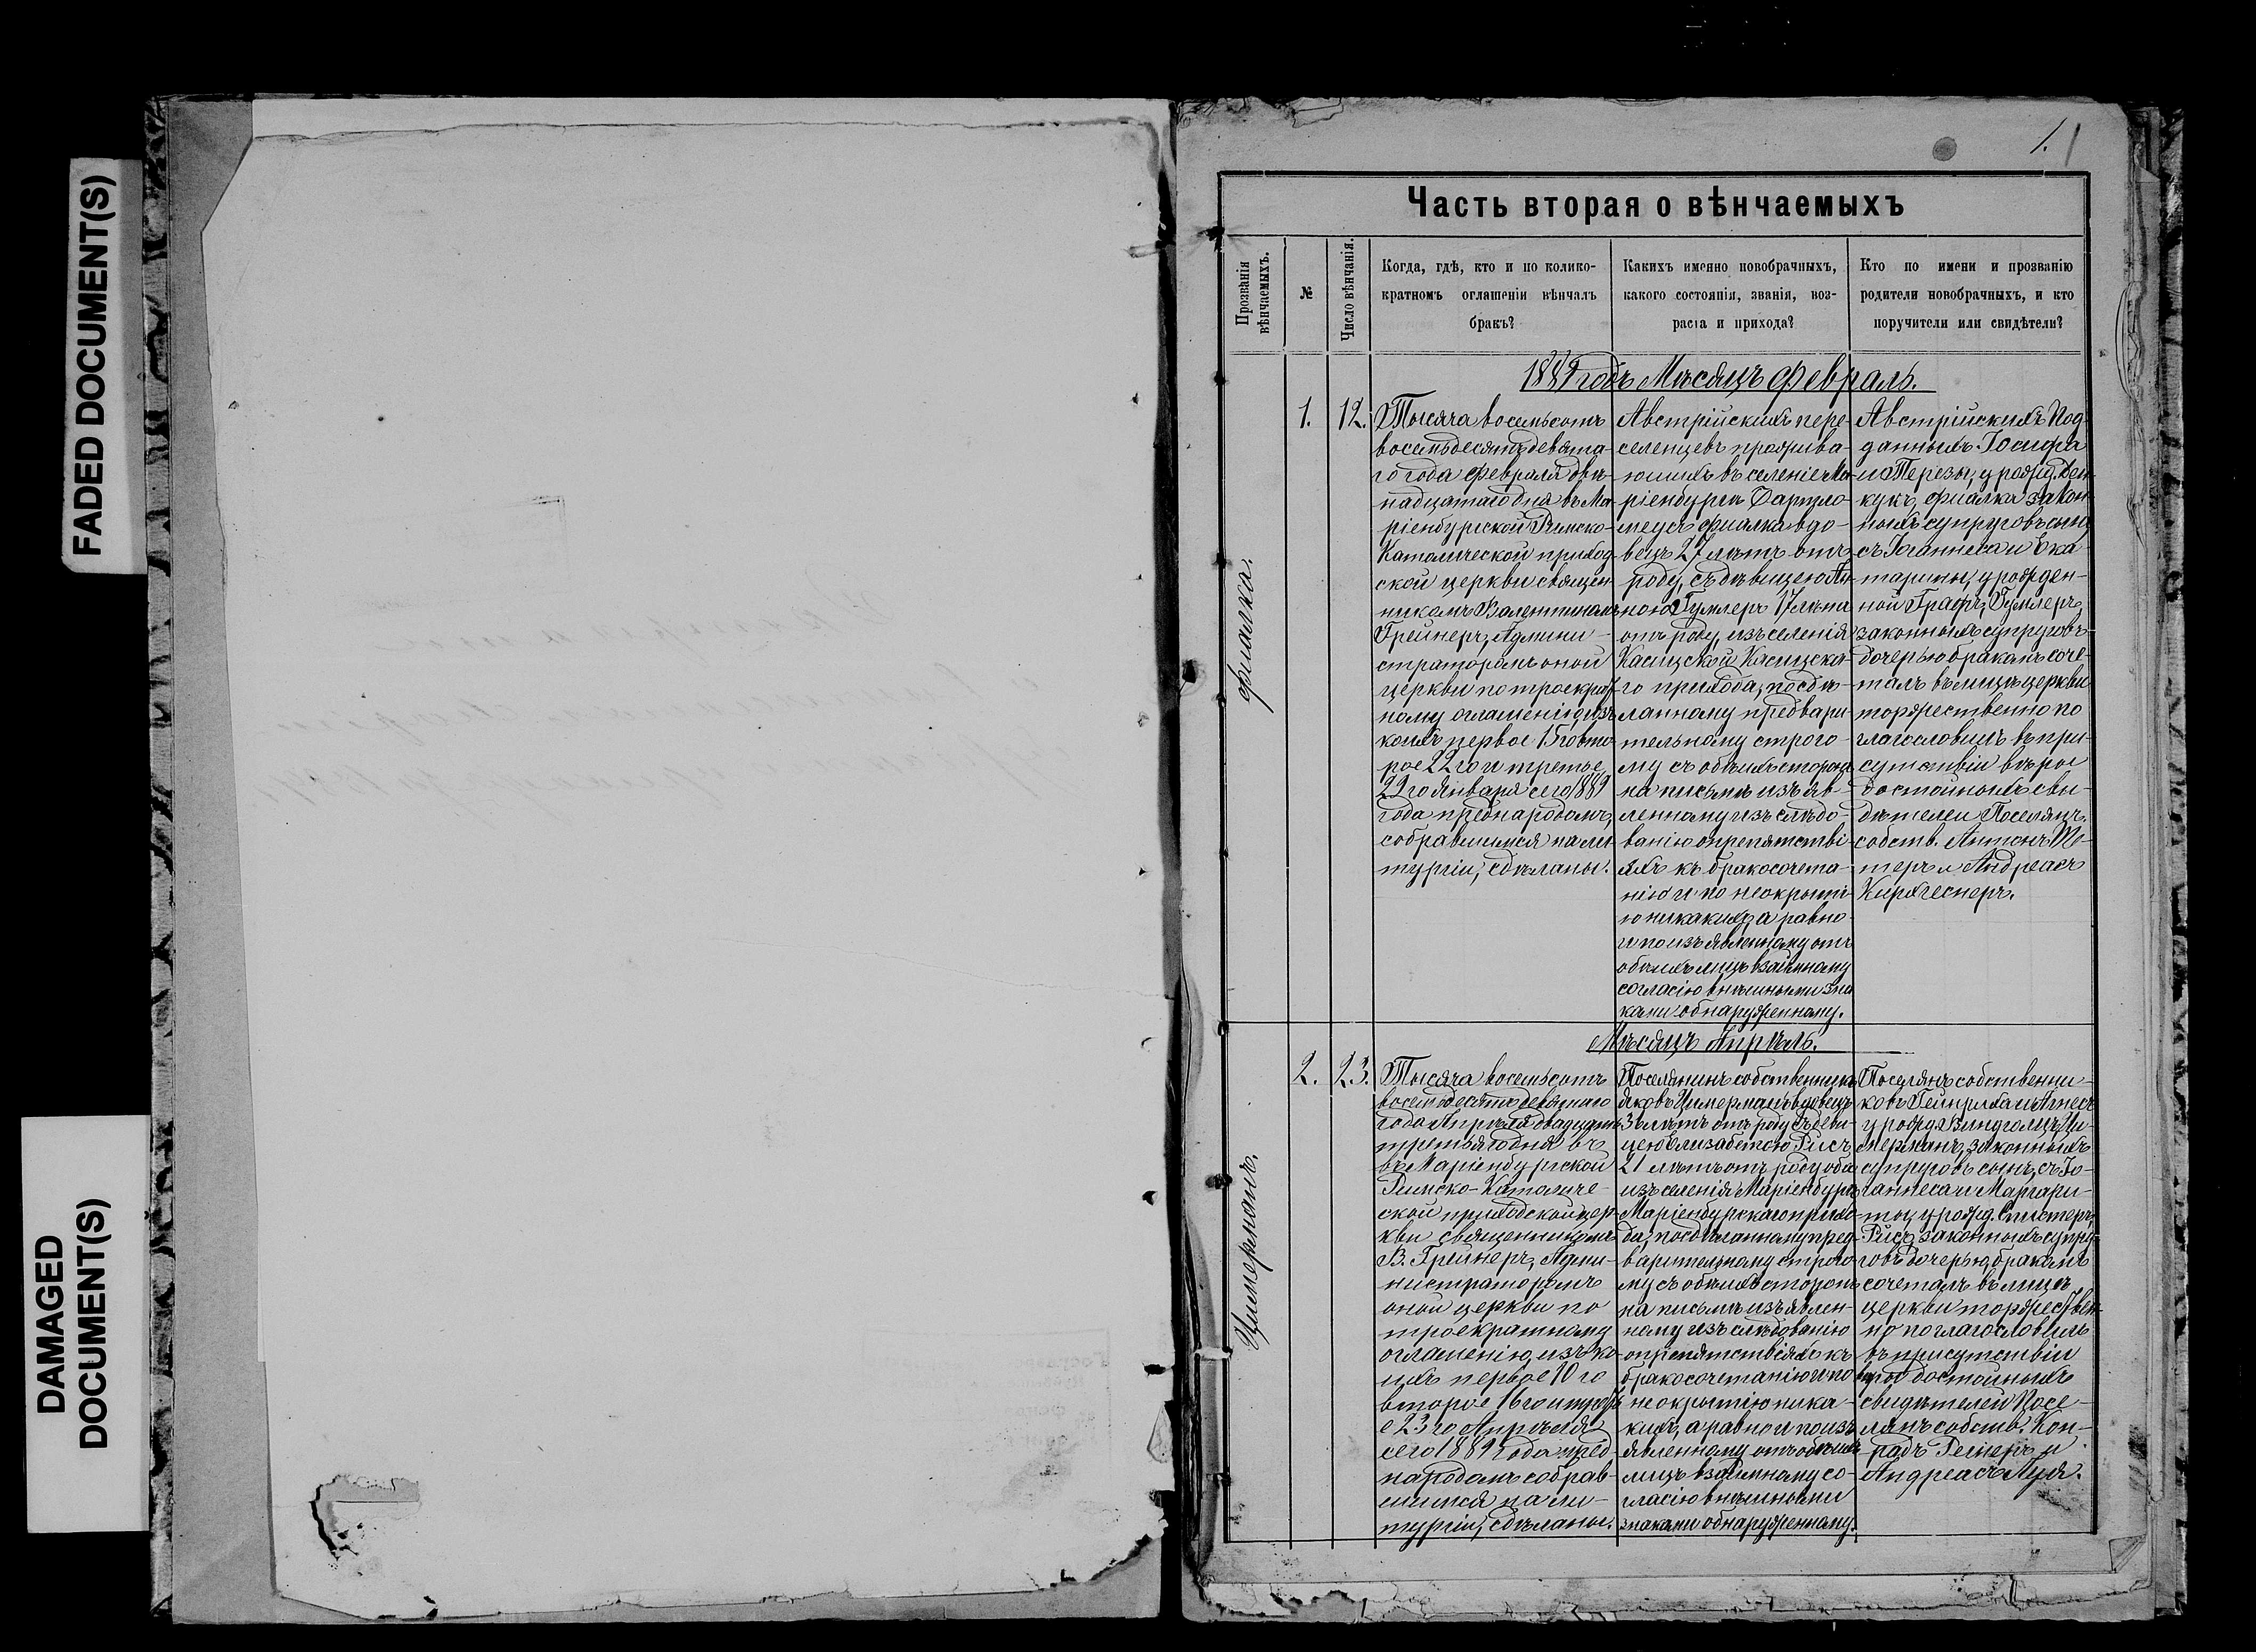 FADED DOCUMENT(S)
DAMAGED
DOCUMENT(S)
1.
Часть вторая о вѣнчаемыхъ
Прозванія
вѣнчаемыхъ.
№
Число вѣнчанія.
Когда, гдѣ, кто и по колико-
кратномъ оглашеніи вѣнчалъ
бракъ?
Какихъ именно новобрачныхъ,
какого состоянія, званія, воз-
раста и прихода?
Кто по имени и прозванію
родители новобрачныхъ, и кто
поручители или свидѣтели?
1889 годъ Мѣсяцъ февраль.
Фиалка.
1.
12.
Тысяча восемьсотъ
восемьдесятъ девята-
го года февраля двѣ-
надцатаго дня въ Ма-
ріенбургской Римско-
Католической приход-
ской церкви священ-
никомъ Валентиномъ
Грейнеръ, Админи-
страторомъ оной
церкви по троекрат-
ному оглашенію, изъ
коихъ первое 15го вто-
рое 22го и третье
29го Января сего 1889
года предъ народомъ,
собравшимся на ли-
тургіи, сдѣланы.
Австрійскихъ пере-
селенцевъ прожива-
ющихъ въ селеніе Ма-
ріенбургъ Бартло-
меусъ Фиалка вдо-
вецъ 27 лѣтъ отъ
роду, съ дѣвицею Ан-
ною Гумлеръ 17 лѣтъ
отъ роду, изъ селенія
Касицкой Касицка-
го прихода, по сдѣ-
ланному предвари-
тельному строго-
му съ обѣихъ сторонъ
на письмѣ изъяв-
ленному изъслѣдо-
ванію о препятстві-
яхъ къ бракосочета-
нію и по неокрыті-
ю никакихъ, а равно
и по изъявленному отъ
обѣихъ лицъ взаимному
согласію внѣшними зна
ками обнаруженному.
Австрійскихъ Под-
данныхъ Іосифа
и Терезы, урожд. Вен-
кукъ, Фиалка закон-
ныхъ супруговъ сына
съ Іоаннеса и Ека-
тарины, урожден-
ной Графъ, Гумлеръ,
законныхъ супруговъ
дочерью бракомъ соче-
талъ въ лицѣ церкви
торжественно по
благословилъ въ при-
сутствіи вѣрое
достойныхъ сви-
дѣтелей Поселянъ
собств. Антонъ Ше-
теръ и Андреасъ
Кирхгеснеръ.
Мѣсяцъ Апрѣль.
Цимерманъ.
2.
23.
Тысяча восемьсотъ
восемьдесятъ девятаго
года Апрѣля двадцать
третьяго дня въ
въ Маріенбургской
Римско-Католиче-
ской приходской цер-
кви священникомъ
В. Грейнеръ, Адми-
нистраторомъ
оной церкви по
троекратному
оглашенію, изъ ко-
ихъ первое 10го
второе 16го и треть
е 23го Апрѣля
сего 1889 года предъ
народомъ собрав-
шимся на ли-
тургіи, сдѣланы.
Поселянинъ собственникъ
Яковъ Цимерманъ вдовецъ
36 лѣтъ отъ роду съ дѣви-
цею Елизабетою Рисъ
21 лѣтъ отъ роду оба
изъ селенія Маріенбургъ
Маріенбургскаго прихо-
да, по сдѣланному пред-
варительному строго-
му съ обѣихъ сторонъ
на письмѣ изъявлен-
ному изъслѣдованію
о препятствіяхъ къ
бракосочетанію и по
неокрытію ника-
кихъ, а равно и по изъ
явленному отъ обѣихъ
лицъ взаимному со-
гласію внѣшними
знаками обнаруженному.
Поселянъ собственни-
ковъ Гейнриха и Агнесъ
урожд. Виндгольцъ, Ци-
мерманъ, законныхъ
супруговъ сынъ, съ Іо-
аннеса и Маргари-
ты, урожд. Спистеръ,
Рисъ, законныхъ супру-
говъ дочерью, бракомъ
сочеталъ въ лицѣ
церкви торжествен-
но поблагословилъ
въ присутствіи
вѣрое достойныхъ
свидѣтелей Посе-
лянъ собств. Кон-
радъ Гейнеръ и
Андреасъ Луя.